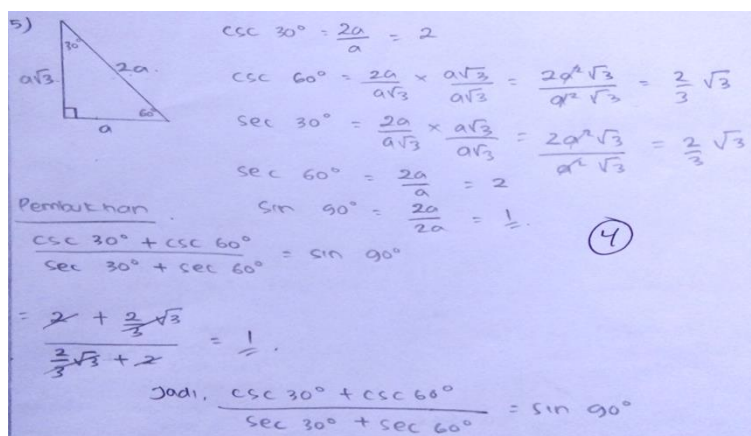 5)
30°
a√3
2a.
60°
a
csc 30° = 2a/a = 2
csc 60° = 2a/a√3 × a√3/a√3 = 2a²√3/a²√3 = 2/3 √3
sec 30° = 2a/a√3 × a√3/a√3 = 2a²√3/a²√3 = 2/3 √3
sec 60° = 2a/a = 2
Pembuktian. sin 90° = 2a/2a = 1.
(csc 30° + csc 60°)/(sec 30° + sec 60°) = sin 90°
4
= (2 + 2/3 √3)/(2/3 √3 + 2) = 1.
Jadi, (csc 30° + csc 60°)/(sec 30° + sec 60°) = sin 90°